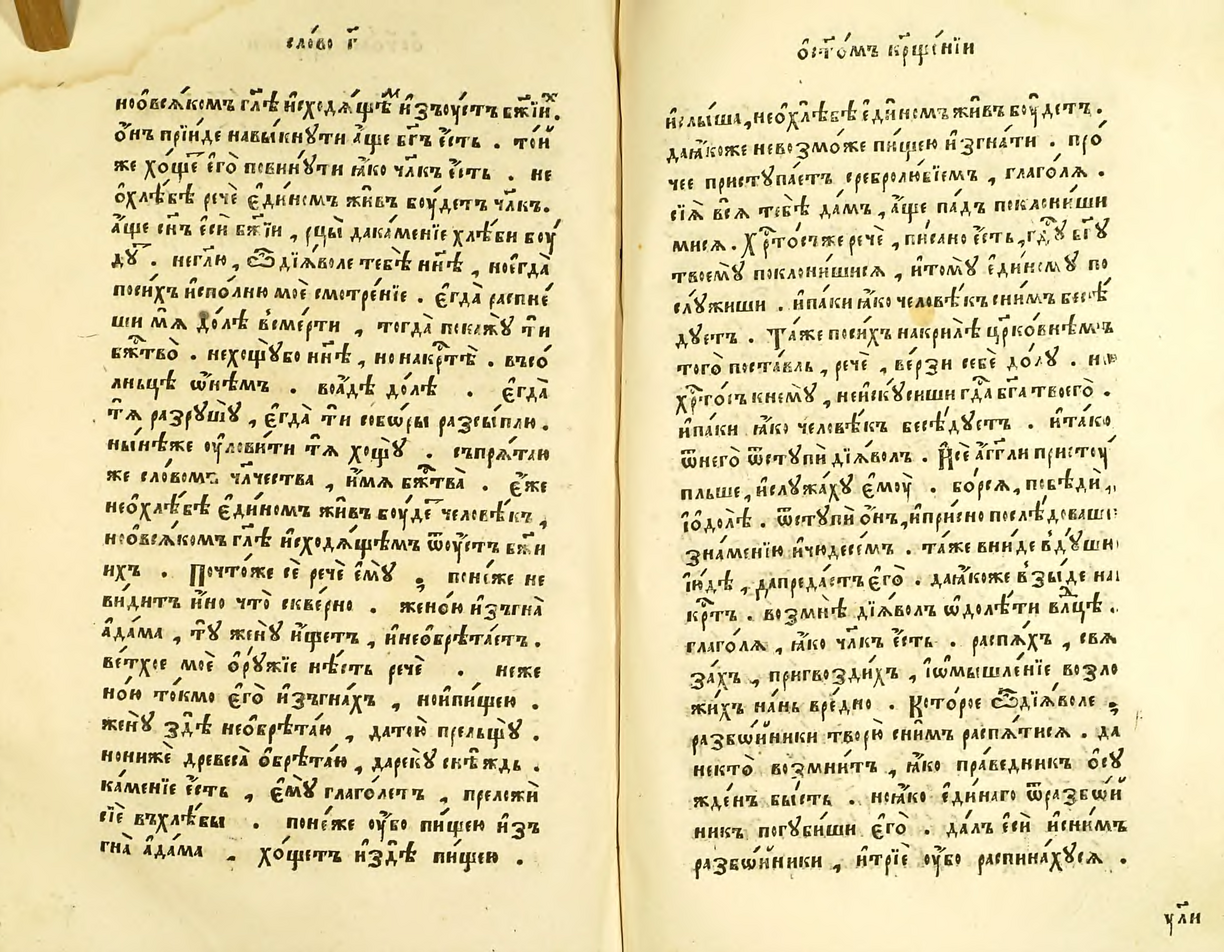 сло́во г҃
но ѡ҆всѧ́комъ гл҃ѣ и҆сходѧ́щѣⷨ и҆зъоу҆́стъ бж҃їиⷯ.
ѻ҆́нъ прїи́де навы́кнꙋти а҆́ще бг҃ъ є҆́сть . то́й
же хо́щеⷮ є҆го̀ повинꙋ́ти ꙗ҆́ко чл҃къ є҆́сть . не
ѻ҆хлѣ́бѣ речѐ є҆ди́номъ жи́въ боу́детъ чл҃къ.
а҆́ще сн҃ъ є҆сѝ бж҃їи , рцы̀ дака́менїе хлѣ́би боу́
дꙋⷮ . негл҃ю , ѽ дїѧ́воле тебѣ̀ нн҃ѣ , ноє҆гда̀
посиⷯхъ и҆спо́лню моѐ смотре́нїе . є҆гда̀ распне́
ши мѧ̀ до́лѣ в҆сме́рти , тогда̀ покажꙋ̀ ти
бж҃тво̀ . нехощꙋ̀бо нн҃ѣ , но накрⷭ҇тѣ̀ . въсо́
лньцѣ ѡ҆не́мъ . воа҆́дѣ до́лѣ . є҆гда̀
тѧ̀ разрꙋшꙋ̀ , є҆гда̀ ти собѡ́ры разсы́плю .
ны́нѣже оу҆лови́ти тѧ̀ хощꙋ̀ . съпрѧ́таю
же сло́вомъ чл҃чества , и҆́мѧ бж҃тва̀ . є҆́же
неѻ҆хлѣ́бѣ є҆ди́номъ жи́въ боу́деⷮ человѣ́къ ,
но ѡ҆всѧ́комъ гл҃ѣ и҆сходѧ́щѣмъ ѿоу҆́стъ бж҃и
ихъ . Почто́же сѐ речѐ є҆мꙋ̀ ; поне́же не
ви́дитъ и҆́но что̀ скве́рно . жено́ю и҆зъгна̀
а҆да́ма , тꙋ̀ женꙋ̀ и҆́щетъ , и҆необрѣта́етъ .
ве́тхое моѐ ѻ҆рꙋ́жїе нѣ́сть речѐ . неже
но́ю то́кмо є҆го̀ и҆зъгна́хъ , нои҆пи́щею .
женꙋ̀ здѣ̀ необрѣта́ю , дато́ю прельщꙋ̀ .
нонижѐ древеса̀ ѻ҆брѣта́ю , дарекꙋ̀ снѣ́ждь .
ка́менїе є҆́сть , є҆мꙋ̀ глаго́летъ , преложѝ
сїѐ въхлѣ́бы . поне́же оу҆́бо пи́щею и҆зъ
гна̀ а҆да́ма . хо́щетъ и҆здѣ̀ пи́щею .
ѻ҆ст҃о́мъ крⷳ҇ще́нїи
и҆слы́ша , неѻ҆хлѣ́бѣ є҆ди́номъ жи́въ боу́детъ .
даꙗ҆́коже невозмо́же пи́щею и҆згна́ти . про́
чее пристꙋпа́етъ сребролю́бїемъ , глаго́лѧ .
сїѧ̀ всѧ̀ тебѣ̀ да́мъ , а҆́ще па́дъ поклони́ши
мисѧ . Хрⷭ҇то́съже речѐ , пи́сано є҆́сть , гдⷭ҇ꙋ бг҃ꙋ
твоемꙋ̀ поклони́шисѧ , и҆томꙋ̀ є҆ди́номꙋ по
слꙋ́жиши . и҆па́ки ꙗ҆́ко человѣ́къ сни́мъ бесѣ́
дꙋетъ . Та́же поси́хъ накрилѣ̀ цр҃ко́внѣмъ
того̀ поста́вль , речѐ , ве́рзи себѐ до́лꙋ . но
хрⷭ҇то́съ кнемꙋ̀ , неи҆скꙋ́сиши гдⷭ҇а бг҃а твоего̀ .
и҆па́ки ꙗ҆́ко человѣ́къ бесѣ́дꙋетъ . и҆та́ко
ѿнего̀ ѿстꙋпѝ дїѧ́волъ . И҆сѐ а҆́гг҃ли пристоу́
пльше , и҆слꙋжа́хꙋ є҆моу̀ . боре́сѧ , побѣдѝ ,
і҆ѻдолѣ̀ . ѿстꙋпѝ ѻ҆́нъ , и҆при́сно послѣ́доваше
зна́менїю и҆чюдесе́мъ . та́же вни́де в҆дꙋ́шꙋ
і҆ю́дѣ , дапреда́стъ є҆го̀ . даꙗ҆́коже в҆зы́де на
крⷭ҇тъ . возмнѣ̀ дїѧ́волъ ѡ҆долѣ́ти влⷣцѣ .
глаго́лѧ , ꙗ҆́ко чл҃къ є҆́сть . распѧ́хъ , свѧ
за́хъ , пригвозди́хъ , і҆ѡ҆мышле́нїе возло
жи́хъ на́нь вре́дно . Кото́рое ѽдїѧ́воле ;
разбѡ́йники творю̀ сни́мъ распѧ́тисѧ . да
некто̀ возмни́тъ , ꙗ҆́ко пра́ведникъ ѻ҆сꙋ
жде́нъ бы́сть . ноꙗ҆́ко є҆ди́наго ѿразбѡ́й
никъ погꙋби́ши є҆го̀ . да́лъ є҆сѝ и҆сни́мъ
разбѡ́йники , и҆трїѐ оу҆́бо распина́хꙋсѧ .
ꙋ҆лⷭ҇и